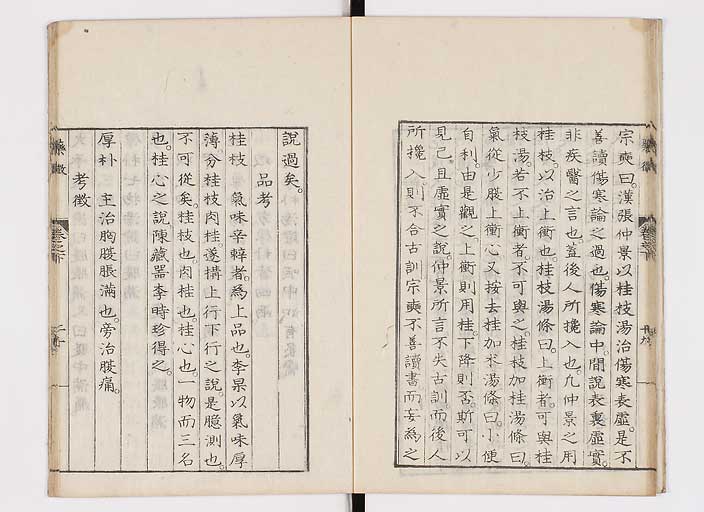 宗奭曰。漢張仲景以桂枝湯治傷寒表虛。是不
善讀傷寒論之過也。傷寒論中。間說表裏虛實。
非疾醫之言也。蓋後人所攙入也。凡仲景之用
桂枝。以治上衝也。桂枝湯條曰。上衝者。可與桂
枝湯。若不上衝者。不可與之。桂枝加桂湯條曰。
氣從少腹上衝心。又按去桂加朮湯條曰。小便
自利。由是觀之。上衝則用桂。下降則否。斯可以
見已。且虛實之說。仲景所言。不失古訓。而後人
所攙入。則不合古訓。宗奭不善讀書。而妄為之
說過矣。
品考
桂枝 氣味辛辣者。為上品也。李杲以氣味厚
薄。分桂枝肉桂。遂構上行下行之說。是臆測也。
不可從矣。桂枝也。肉桂也。桂心也。一物而三名
也。桂心之說。陳藏器李時珍得之。
厚朴 主治胸腹脹滿也。旁治腹痛。
考徵
藥徵
卷之下